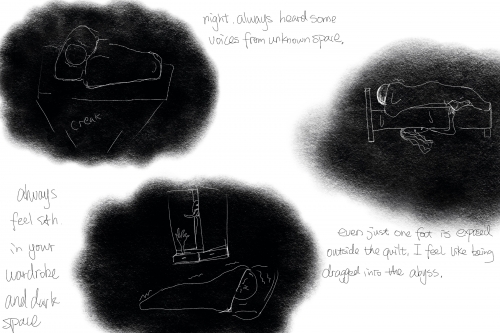 night. always heard some
voices from unknown space.
Creak
always
feel sth.
in your
wardrobe
and dark
space
even just one foot is exposed
outside the quilt, I feel like being
dragged into the abyss.